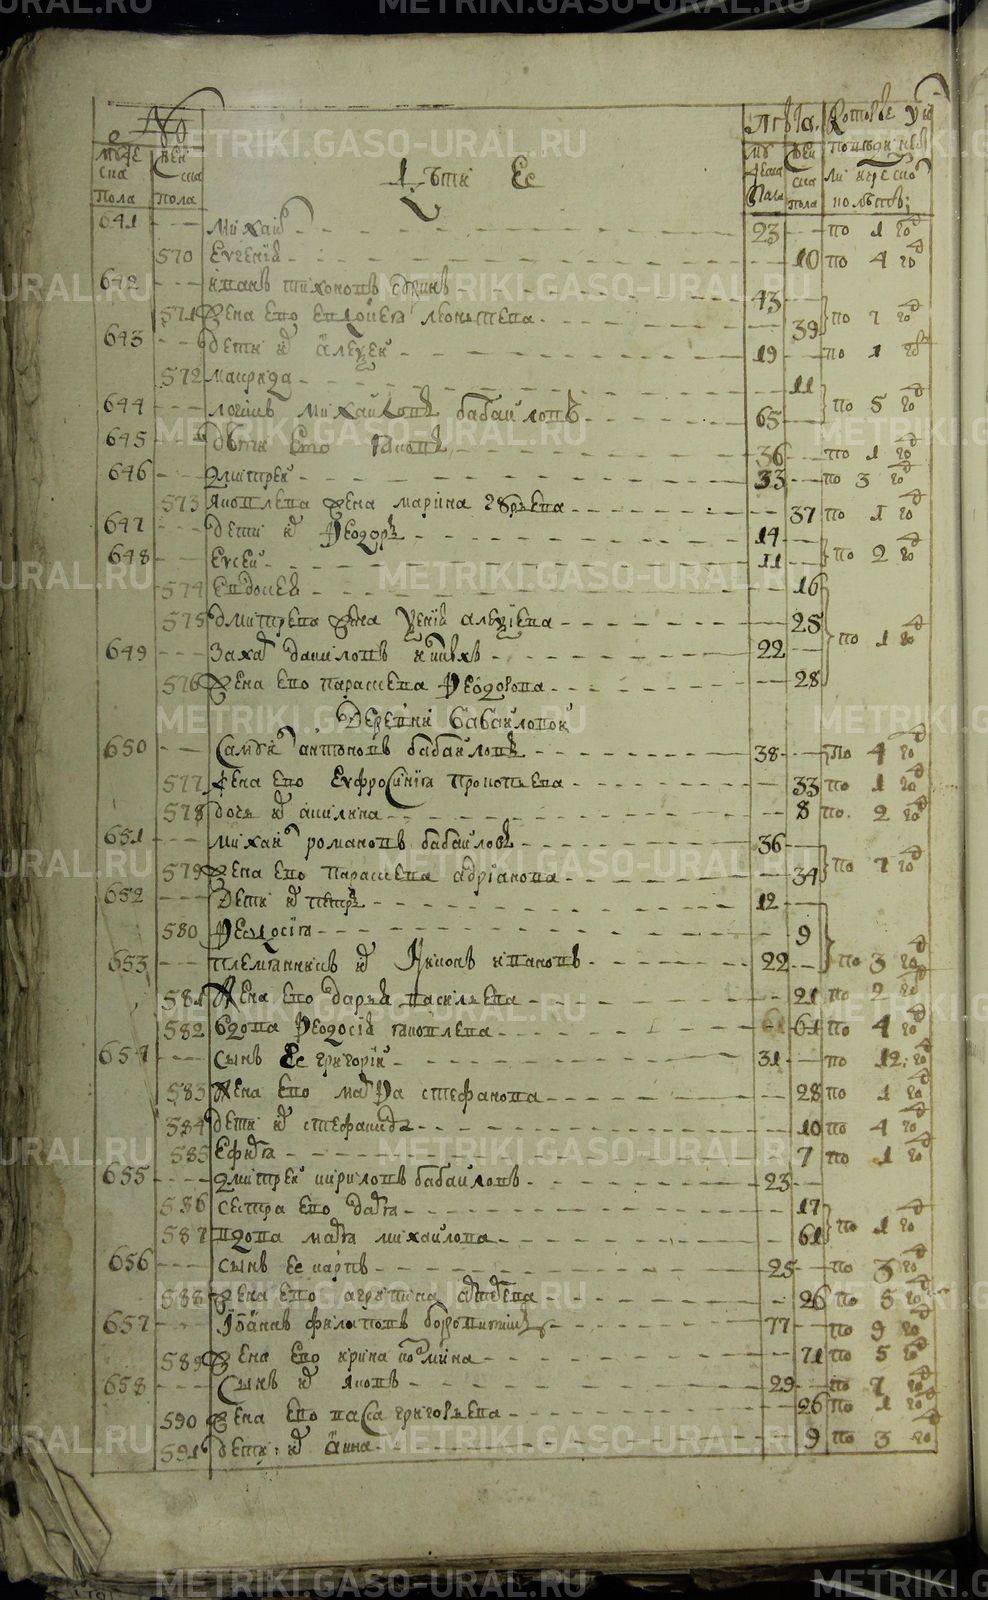 METRIKI.GASO-URAL.RU
№
муже ска пола
жен ска пола
Дѣти Ее
Лѣта
му жеска пола
жен ска пола
641 Михаил 23 по 1 год
570 Евгенія 10 по 4 год
642 Иванъ Тихоновъ 43
571 Жена его Евдокея Леонтьева 39 по 7 год
643 Дети их Алексеи 19 по 1 год
572 Маврида 11
644 Логинъ Михаиловъ Бабаиловъ 65 по 5 год
645 Дѣти его Яковъ 36 по 1 год
646 Дмитреи 33 по 3 год
573 Яковлева жена Марина 37 по 1 год
647 Дети их Феодоръ 14
648 Евсеи 11 по 2 год
574 Евдокея 16
575 Дмитрева жена Ксенія Алексіева 25
649 Захар Даниловъ 22 по 1 год
576 Жена его Парасцева Феодорова 28
Деревни Бабаиловои
650 Самсон Антоновъ Бабаиловъ 38 по 4 год
577 Жена его Еуфросиния Прокопьева 33 по 1 год
578 дочь их Акилина 8 по 2 год
651 Михаил Романовъ Бабаиловъ 36
579 Жена его Парасцева Адріанова 34 по 7 год
652 Дети их Петръ 12
580 Феодосія 9
653 племянникъ их Никонъ Ивановъ 22 по 3 год
581 Жена его Дарья Васильева 21 по 2 год
582 Вдова Феодосія Яковлева 61 61 по 4 год
654 Сынъ Ее Григореи 31 по 12 год
583 Жена его Марфа Стефанова 28 по 1 год
584 Дети их Стефанида 10 по 4 год
585 7 по 1 год
655 Дмитреи Кириловъ Бабаиловъ 23
586 Сестра его Дарья 17
587 вдова Марья Михаилова 61 по 1 год
656 Сынъ Ее Карпъ 25 по 3 год
588 Жена его Агрипина 26 по 5 год
657 Іоаннъ Филатовъ 77 по 9 год
589 Жена его Ирина 71 по 5 год
658 Сынъ их Яковъ 29 по 7 год
590 Жена его Васса Григорьева 26 по 1 год
591 дети их Анна 9 по 3 год